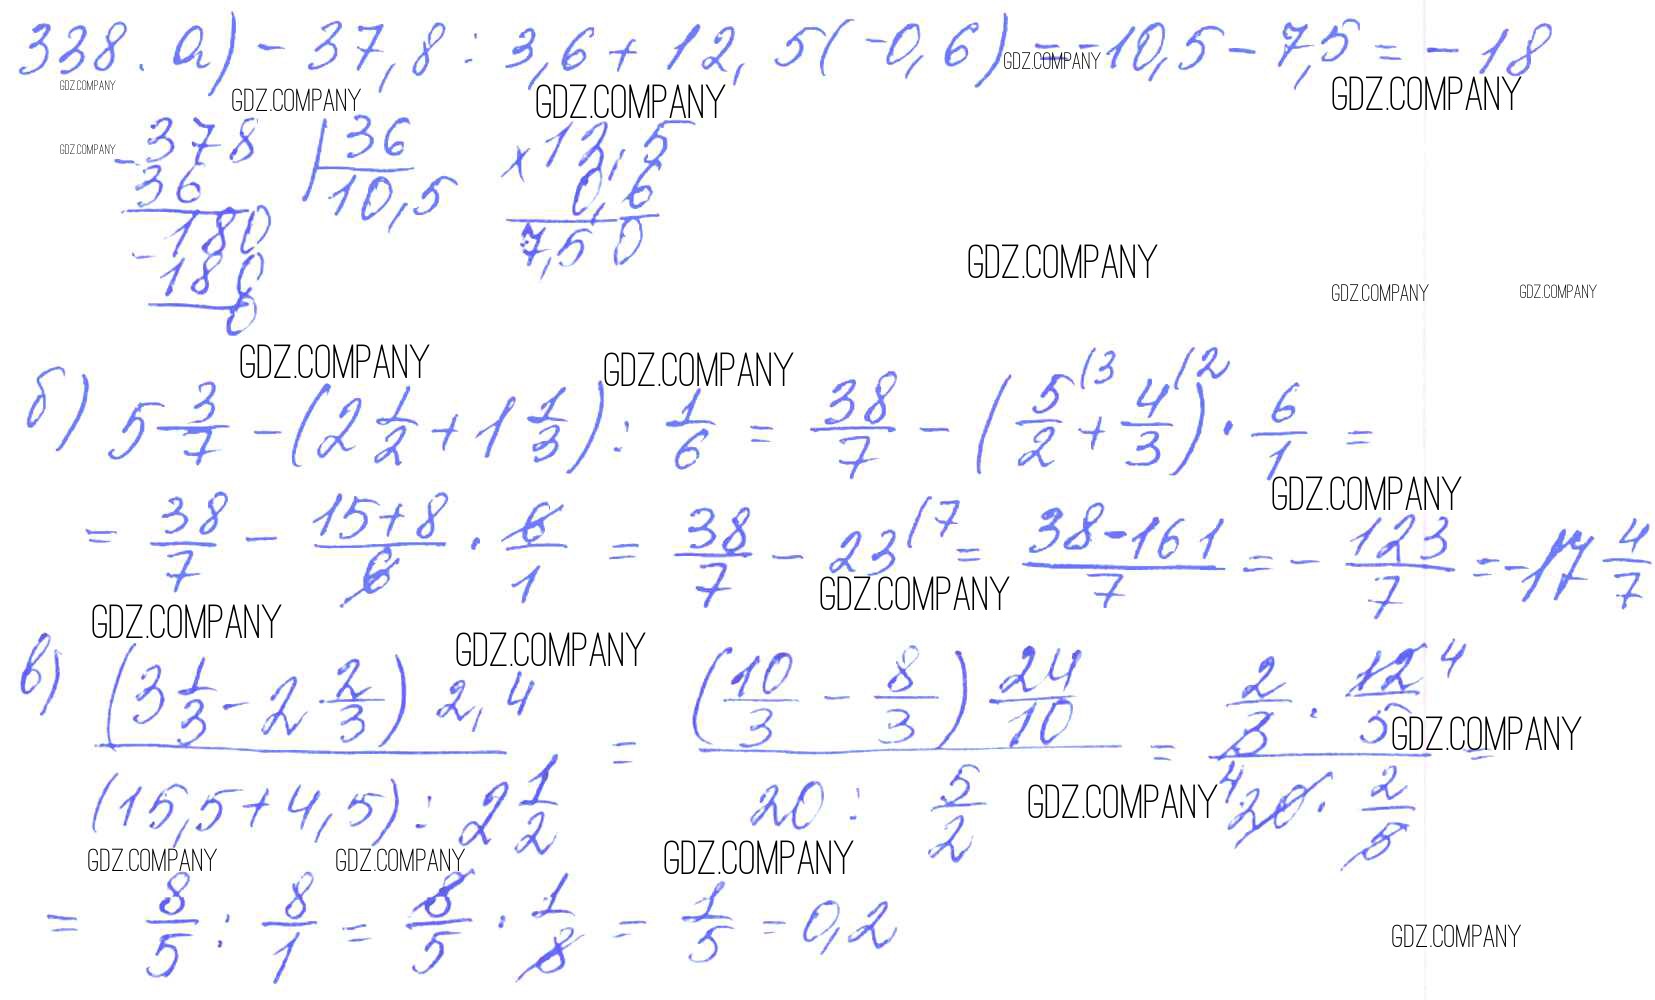 338. а) - 37,8 : 3,6 + 12,5(-0,6) = -10,5 - 7,5 = - 18
GDZ.COMPANY GDZ.COMPANY GDZ.COMPANY GDZ.COMPANY GDZ.COMPANY
GDZ.COMPANY -378 | 36 × 12,5
36 10,5 0,6
-180 7,50
180
0
GDZ.COMPANY GDZ.COMPANY GDZ.COMPANY
GDZ.COMPANY GDZ.COMPANY
б) 5 3/7 - (2 1/2 + 1 1/3) : 1/6 = 38/7 - (5/2 (3 + 4/3 (2) · 6/1 =
GDZ.COMPANY
= 38/7 - 15+8/6 · 6/1 = 38/7 - 23 (7 = 38-161/7 = - 123/7 = -17 4/7
GDZ.COMPANY
GDZ.COMPANY GDZ.COMPANY
в) (3 1/3 - 2 2/3) 2,4 / (15,5 + 4,5) : 2 1/2 = (10/3 - 8/3) 24/10 / 20 : 5/2 = 2/3 · 12/5 4 / 4 20 · 2/5 =
GDZ.COMPANY GDZ.COMPANY
GDZ.COMPANY GDZ.COMPANY GDZ.COMPANY
= 8/5 : 8/1 = 8/5 · 1/8 = 1/5 = 0,2
GDZ.COMPANY